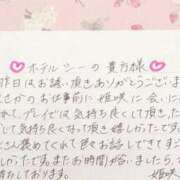 ホテルシーの貴方様
昨日はお誘い頂きありがとうございま
さかのお仕事前に姫咲に会いに
か、プレイでは気持ち良くして頂き
て気持ち良くなって頂き嬉しかったです
さん褒めてくれて、お話しできてとて
たですまたお時間が合いましたら
ちしております。姫咲